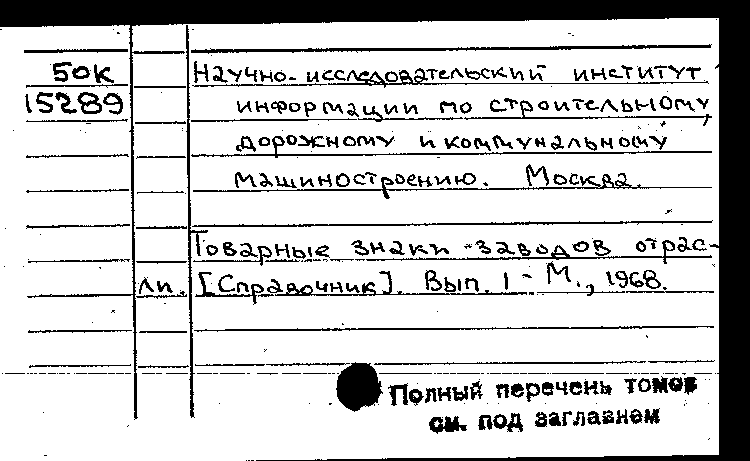 50К Научно-исследовательский институт
15289 информации по строительному,
дорожному и коммунальному
машиностроению. Москва.
Товарные знаки заводов отрас-
ли. [Справочник]. Вып. 1- М., 1968.
Полный перечень томов
см. под заглавием